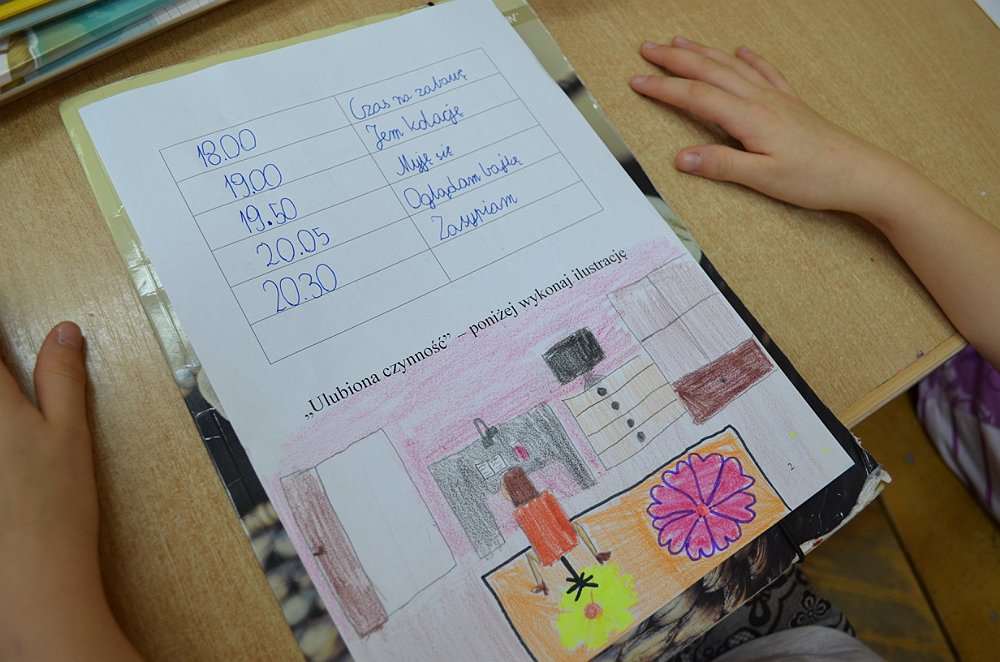 18.00 Czas na zabawę
19.00 Jem kolację
19.50 Myję się
20.05 Oglądam bajkę
20.30 Zasypiam
„Ulubiona czynność” – poniżej wykonaj ilustrację
2